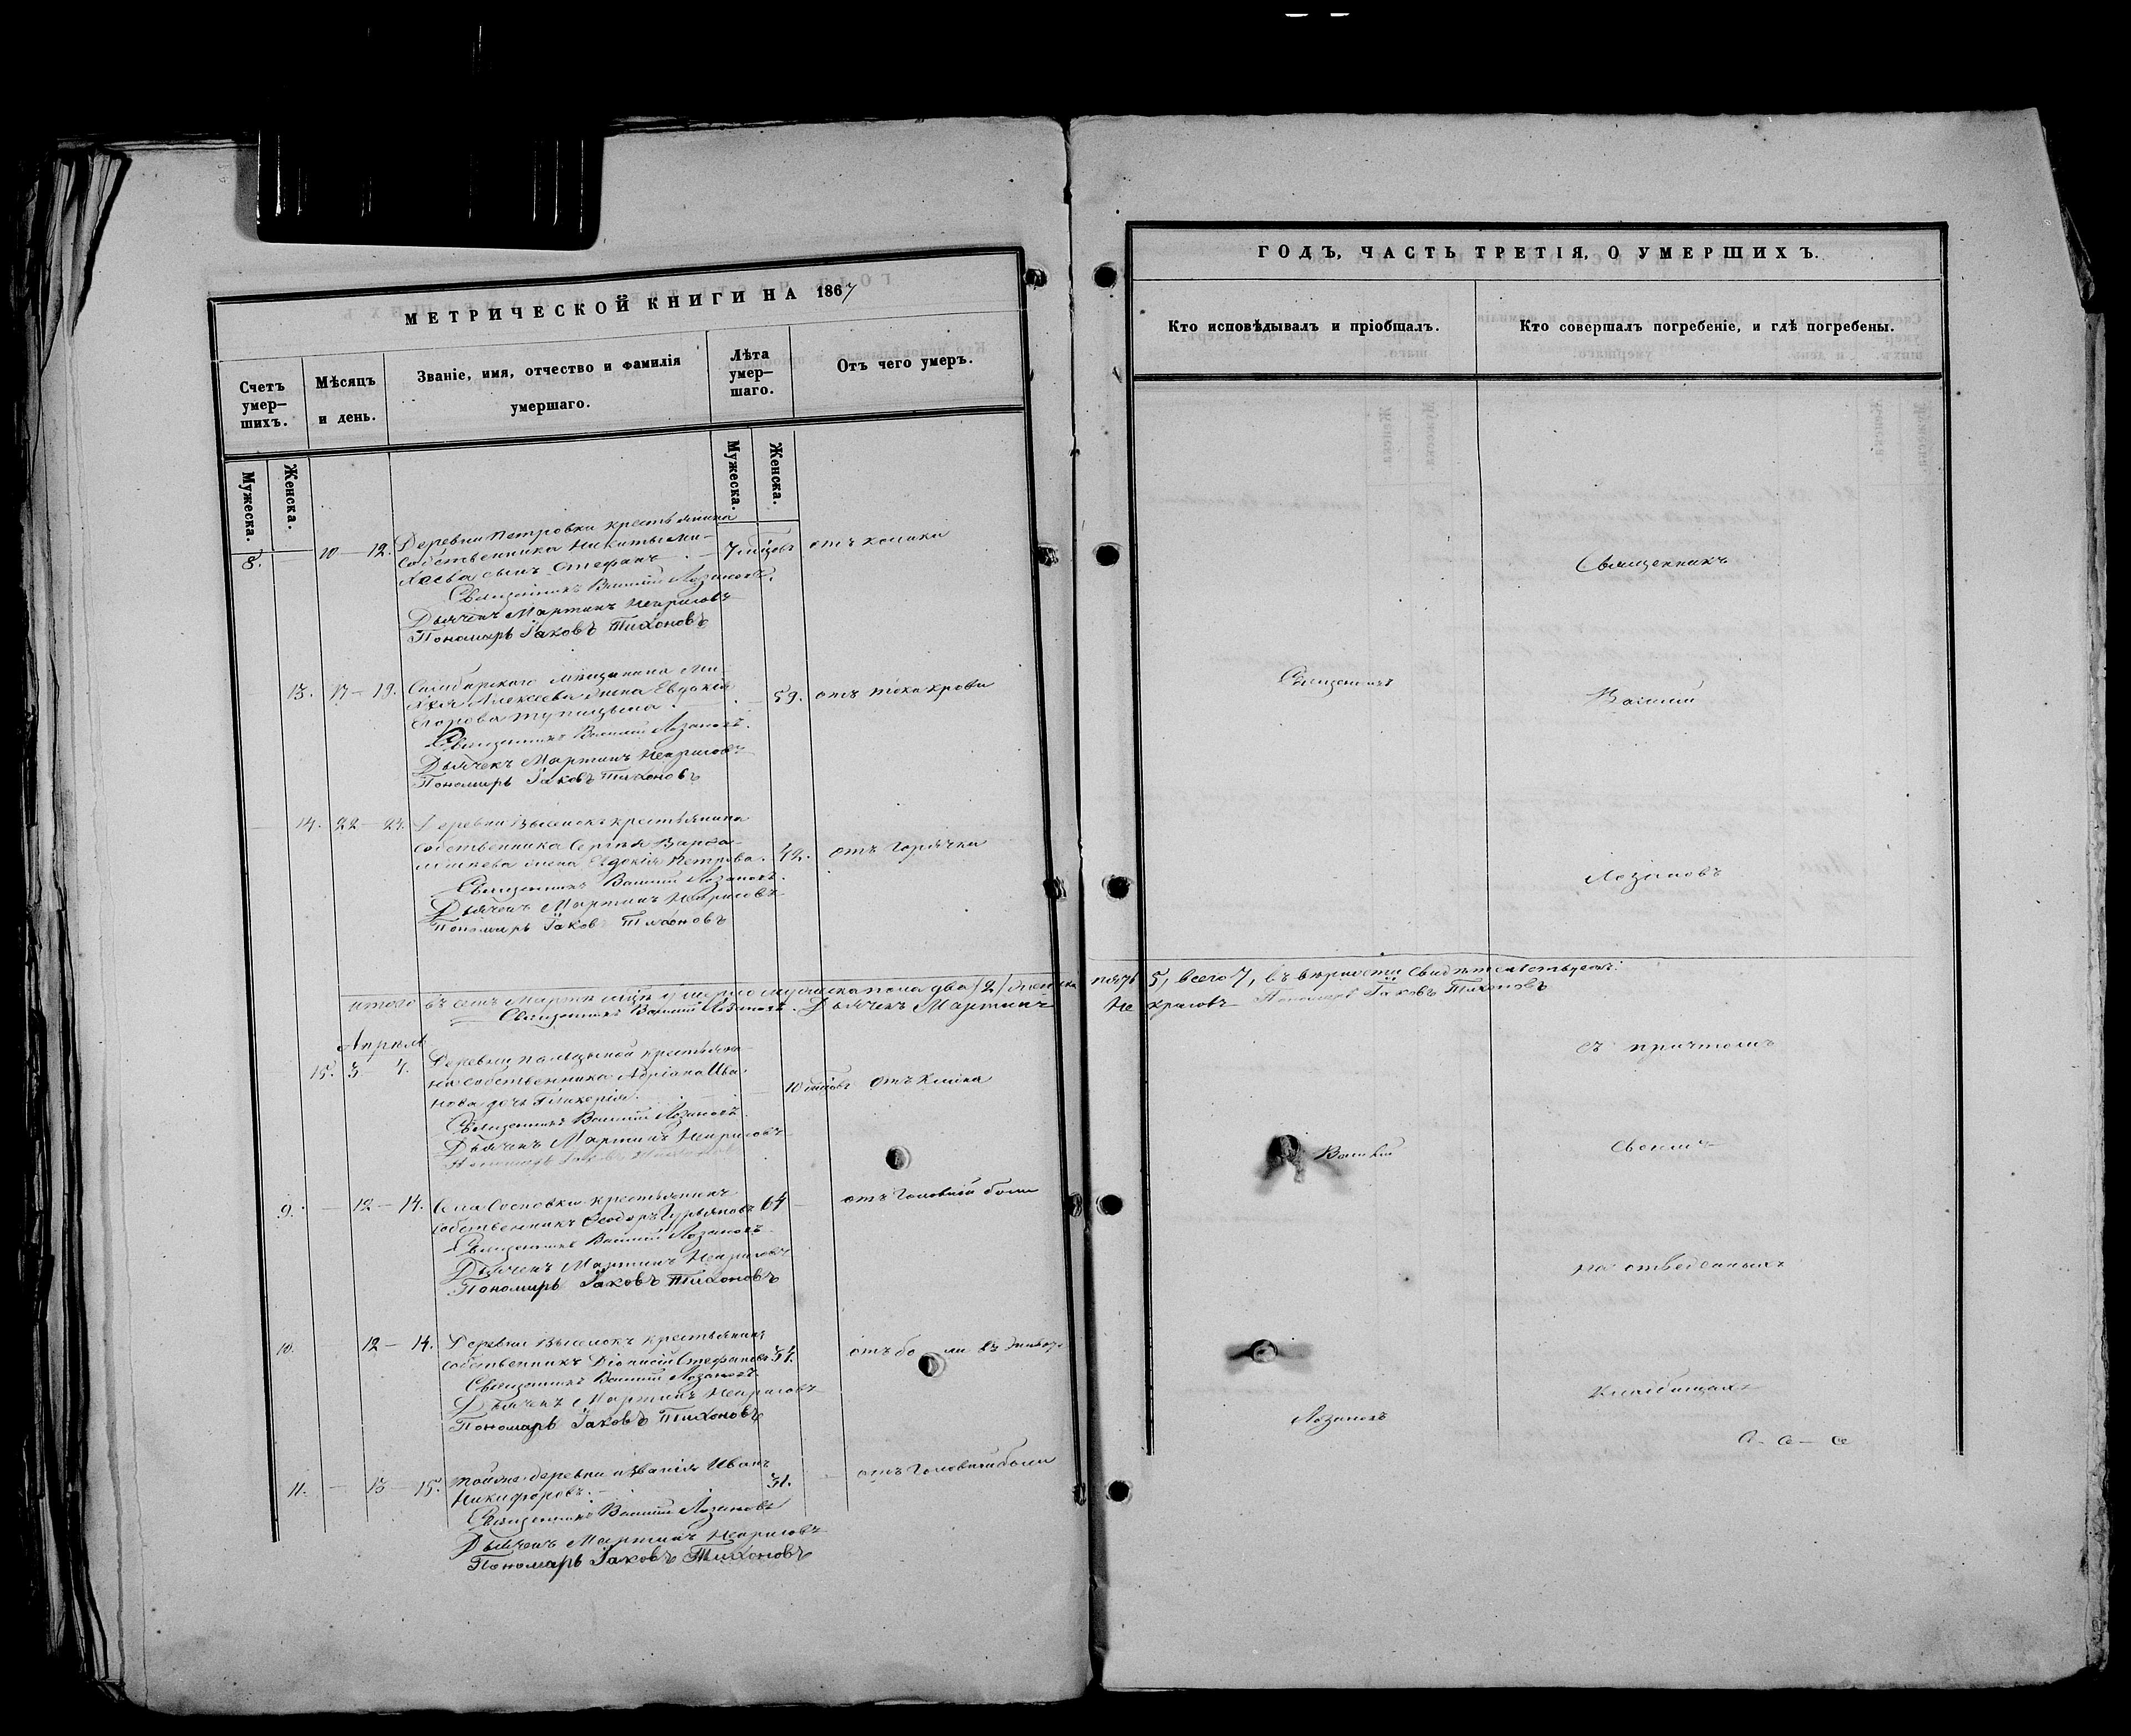 МЕТРИЧЕСКОЙ КНИГИ НА 1867
Счетъ умер-шихъ.
Мѣсяцъ и день.
Званіе, имя, отчество и фамилія умершаго.
Лѣта умер-шаго.
Отъ чего умеръ.
Мужеска.
Женска.
Мужеска.
Женска.
8. — 10 — 12. Деревни Петровки крестьянина
собственника Никиты Ми-
хеева сынъ Стефанъ 7 мѣцовъ отъ колики
Священникъ Василій Лозановъ.
Дьячекъ Мартинъ Некрасовъ
Пономарь Іаковъ Тихоновъ
13. 17 — 19. Симбирскаго мѣщанина Ми-
Алексѣева жена Евдокія 59. отъ тока крови
Егорова
Священникъ Василій Лозановъ.
Дьячекъ Мартинъ Некрасовъ
Пономарь Іаковъ Тихоновъ
14. 22 — 24. Деревни Выселокъ крестьянина
собственника Сергѣя Варѳо-
ломеева жена Евдокія Петрова. 42. отъ горячки
Священникъ Василій Лозановъ.
Дьячекъ Мартинъ Некрасовъ
Пономарь Іаковъ Тихоновъ
итого въ семъ Мартѣ мцѣ умерло мужеска пола два /2/ женска
Священникъ Василій Лозановъ. Дьячекъ Мартинъ
Апрѣль
15. 3 4. Деревни крестьяни-
на собственника Адріана Ива-
нова дочь Гликерія. 10 мѣцовъ отъ кашля
Священникъ Василій Лозановъ.
Дьячекъ Мартинъ Некрасовъ
Пономарь Іаковъ Тихоновъ
9. — 12 — 14. Села Сосновки крестьянинъ
собственникъ Ѳеодоръ Гурьяновъ 64 — отъ головной боли
Священникъ Василій Лозановъ.
Дьячекъ Мартинъ Некрасовъ
Пономарь Іаковъ Тихоновъ
10. 12 — 14. Деревни Выселокъ крестьянинъ
собственникъ Діонисій Стефановъ отъ боли въ
Священникъ Василій Лозановъ.
Дьячекъ Мартинъ Некрасовъ
Пономарь Іаковъ Тихоновъ
11. — 13 — 15. Той же деревни и званія Иванъ
Никифоровъ. 31. — отъ головной боли
Священникъ Василій Лозановъ
Дьячекъ Мартинъ Некрасовъ
Пономарь Іаковъ Тихоновъ
ГОДЪ, ЧАСТЬ ТРЕТІЯ, О УМЕРШИХЪ.
Кто исповѣдывалъ и пріобщалъ.
Кто совершалъ погребеніе, и гдѣ погребены.
Священникъ
Священникъ
Василій
Лозановъ
пять 5, всего 7, въ вѣрности свидѣтельствуемъ:
Некрасовъ Пономарь Іаковъ Тихоновъ
съ причтомъ
Василій
своимъ
на отведенныхъ
кладбищахъ
Лозановъ